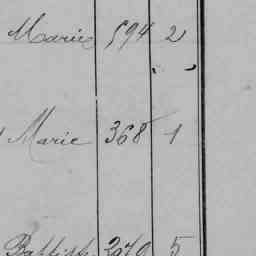 Marie 594 2
Marie 368 1
Baptiste 2070 5